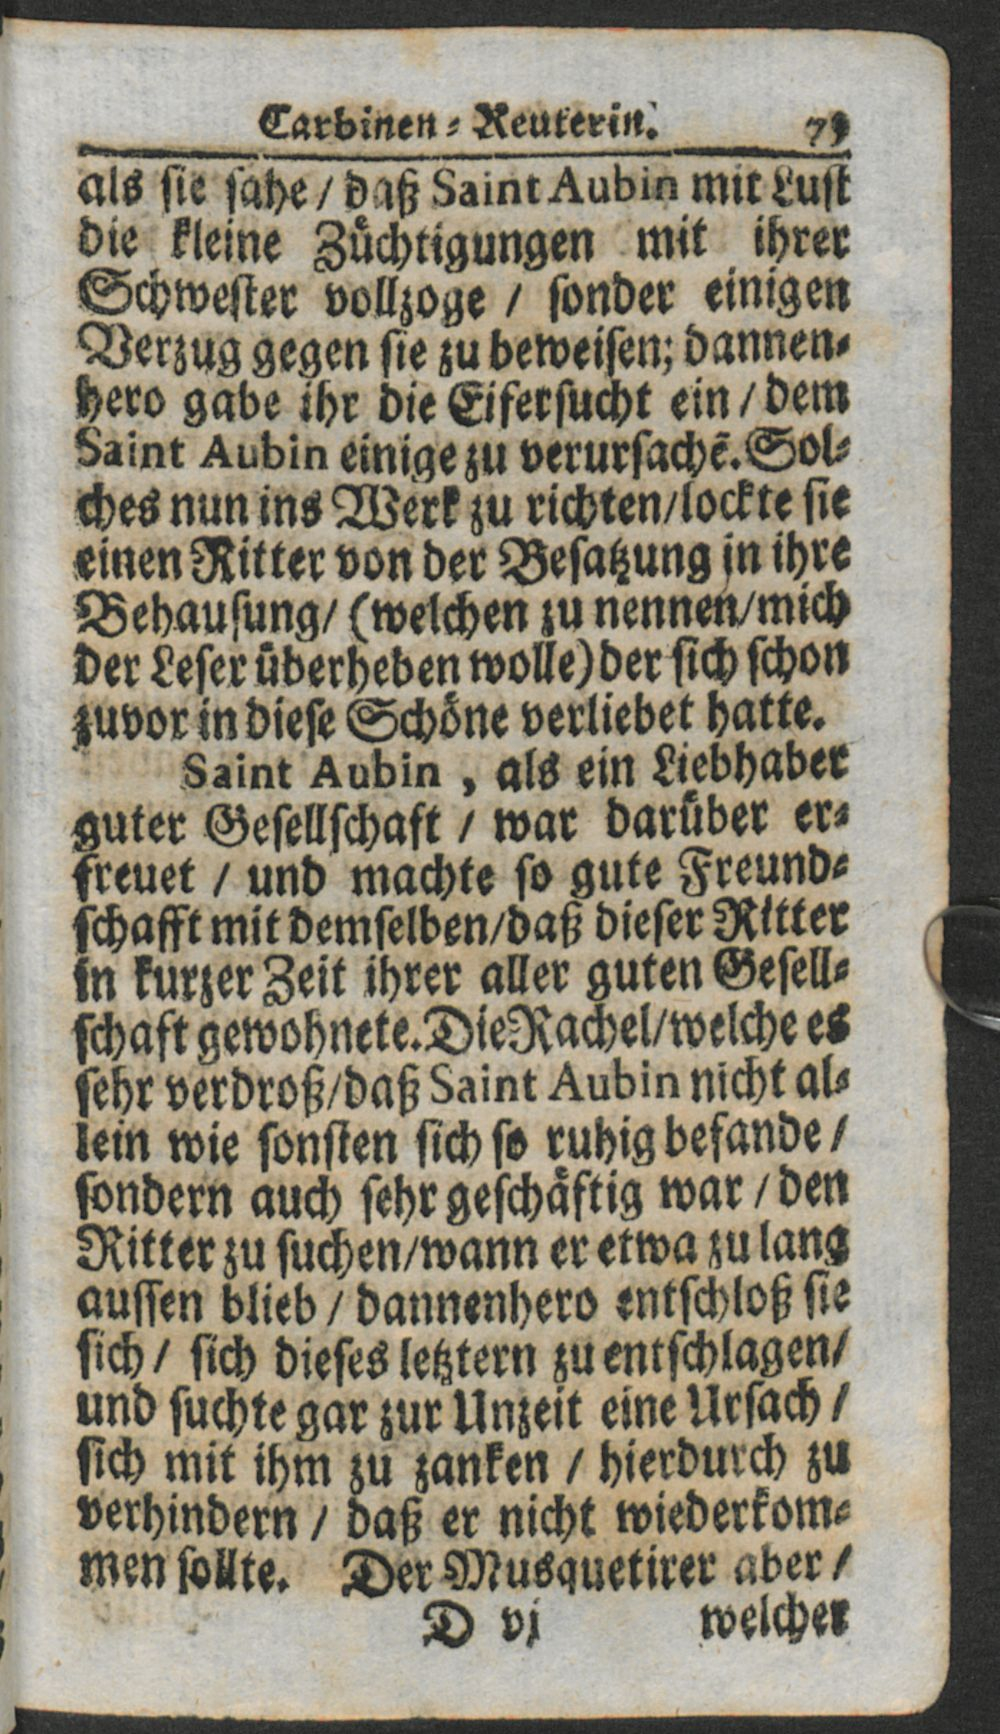 Carbinen-Reuterin. 79
als sie sahe / daß Saint Aubin mit Lust
die kleine Züchtigungen mit ihrer
Schwester vollzoge / sonder einigen
Verzug gegen sie zu beweisen; dannen-
hero gabe ihr die Eifersucht ein / dem
Saint Aubin einige zu verursachẽ. Sol-
ches nun ins Werk zu richten/lockte sie
einen Ritter von der Besatzung in ihre
Behausung/ (welchen zu nennen/mich
der Leser überheben wolle) der sich schon
zuvor in diese Schöne verliebet hatte.
Saint Aubin, als ein Liebhaber
guter Gesellschaft / war darüber er-
freuet / und machte so gute Freund-
schafft mit demselben/daß dieser Ritter
in kurzer Zeit ihrer aller guten Gesell-
schaft gewohnete. Die Rachel/welche es
sehr verdroß/daß Saint Aubin nicht al-
lein wie sonsten sich so ruhig befande /
sondern auch sehr geschäftig war / den
Ritter zu suchen/wann er etwa zu lang
aussen blieb / dannenhero entschloß sie
sich / sich dieses letztern zu entschlagen/
und suchte gar zur Unzeit eine Ursach /
sich mit ihm zu zanken / hierdurch zu
verhindern / daß er nicht wiederkom-
men sollte. Der Musquetirer aber /
D vj welcher